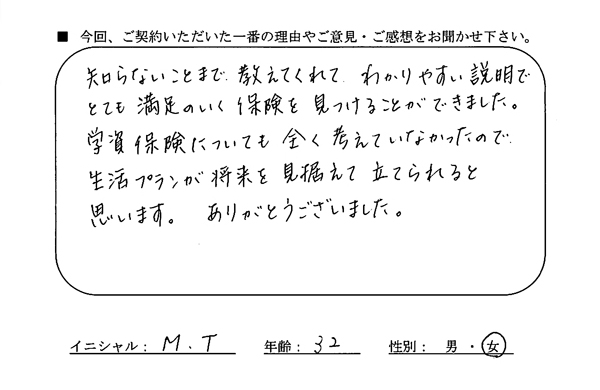 ■ 今回、ご契約いただいた一番の理由やご意見・ご感想をお聞かせ下さい。
知らないことまで教えてくれて わかりやすい説明で
とても満足のいく保険を見つけることができました。
学資保険についても全く考えていなかったので
生活プランが将来を見据えて立てられると
思います。 ありがとうございました。
イニシャル： M．T 年齢： 32 性別： 男 ・ 女